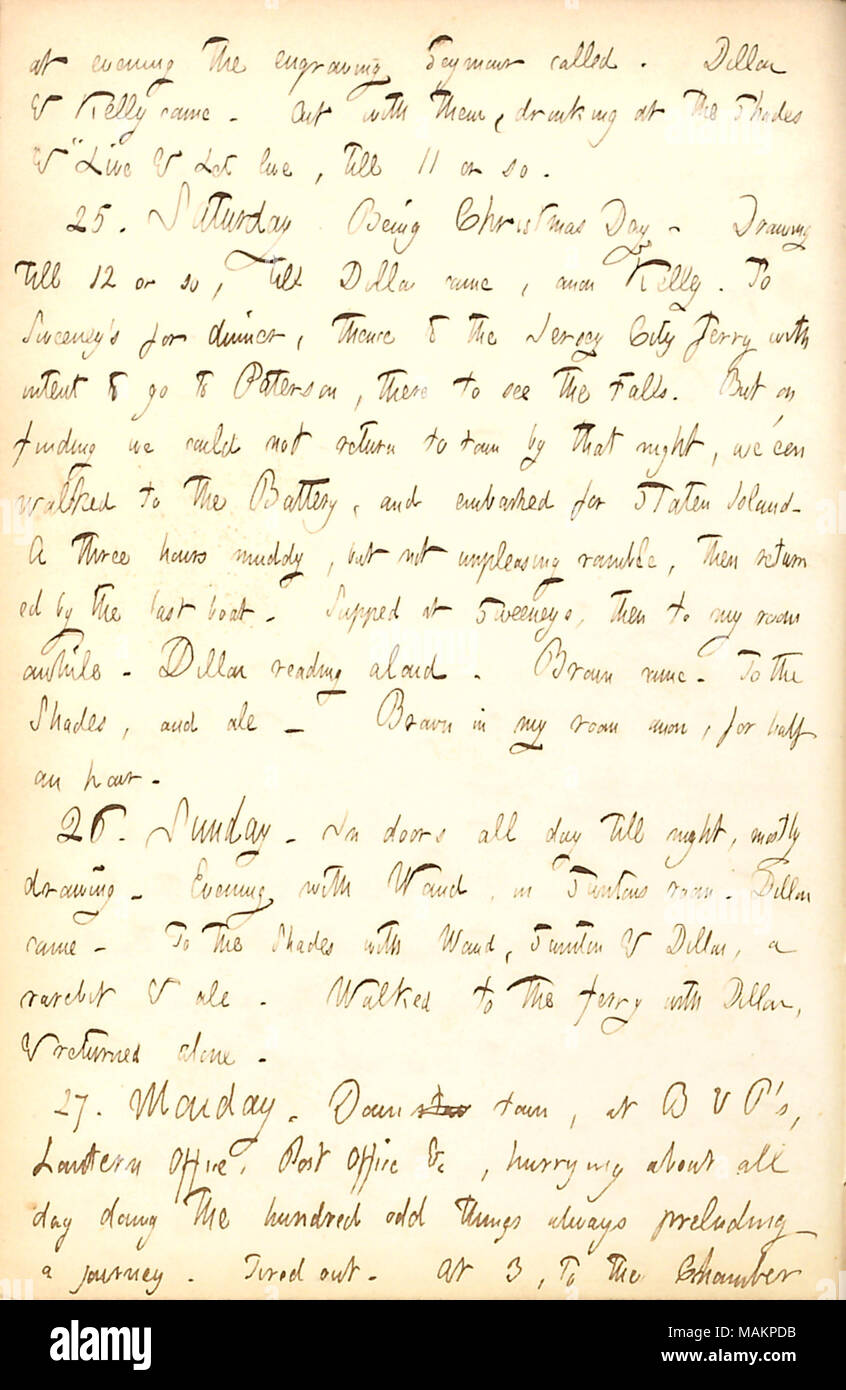 at evening the engraving Seymour called. Dillon
& Kelly came. Out with them, drinking at the Shades
& "Live & Let live, till 11 or so.
25. Saturday. Being Christmas Day. Drawing
till 12 or so, till Dillon came, anon Kelly. To
Sweeney's for dinner, thence to the Jersey City ferry with
intent to go to Paterson, there to see the Falls. But on
finding we could not return to town by that night, we e'en
walked to the Battery, and embarked for Staten Island.
A three hours muddy, but not unpleasing ramble, then return
ed by the last boat. Supped at Sweeneys, then to my room
awhile. Dillon reading aloud. Brown came. To the
Shades, and ale. Brown in my room anon, for half
an hour.
26. Sunday. In doors all day till night, mostly
drawing. Evening with Waud, in Swintons room. Dillon
came. To the Shades with Waud, Swinton & Dillon, a
rarebit & ale. Walked to the ferry with Dillon,
& returned alone.
27. Monday. Down town, at B & P's,
Lantern Office, Post Office &c, hurrying about all
day doing the hundred odd things always preluding
a journey. Tired out. At 3, To the Chamber
alamy
Image ID: MAKPDB
www.alamy.com